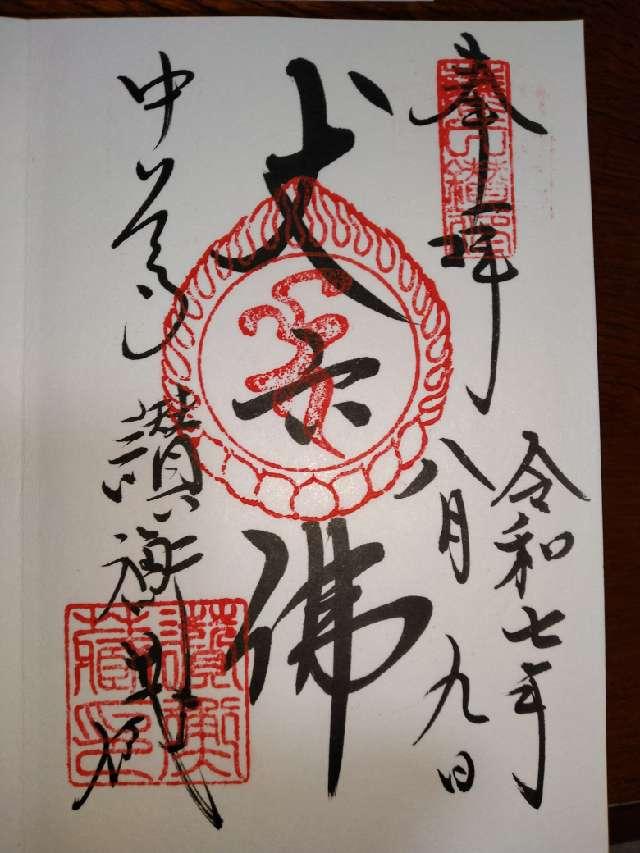 奉拝
令和七年
八月九日
丈六佛
中尊寺 讃衡蔵
讃衡藏印